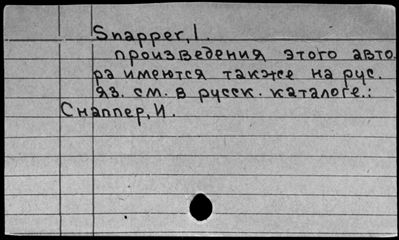 Snapper, I.
произведения этого авто
ра имеются также на рус.
яз. см. в русск. каталоге.:
Снаппер, И.